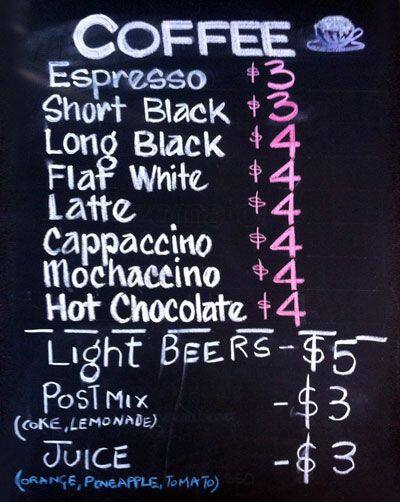 COFFEE
Espresso $3
Short Black $3
Long Black $4
Flat White $4
Latte $4
Cappaccino $4
Mochaccino $4
Hot Chocolate $4
Light BEERS - $5
POSTMIX - $3
(COKE, LEMONADE)
JUICE - $3
(ORANGE, PENEAPPLE, TOMATO)